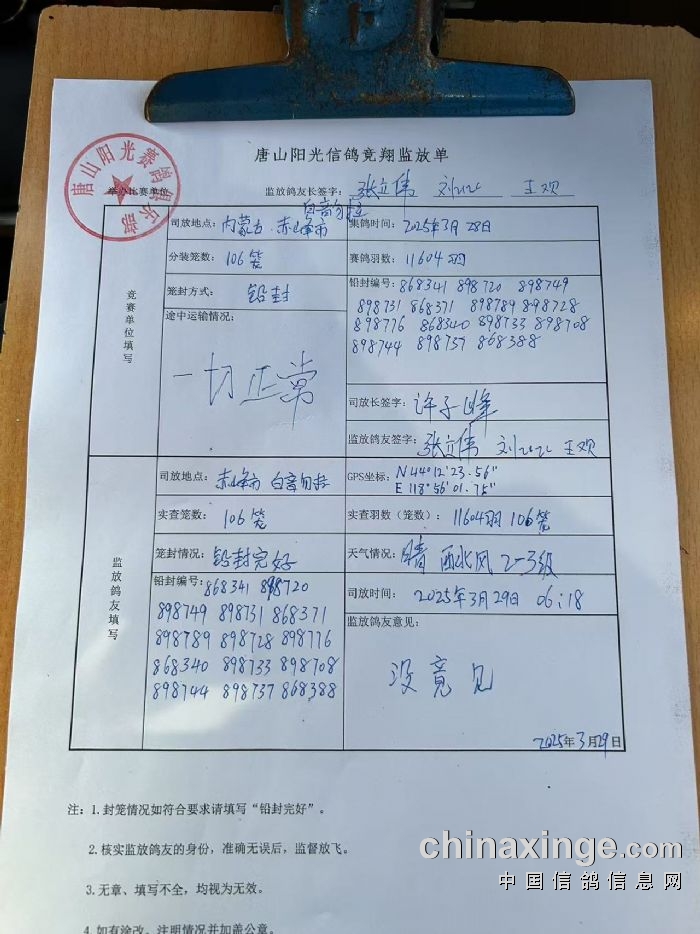 唐山阳光信鸽竞翔监放单
唐山阳光赛鸽俱乐部
举办比赛单位
监放鸽友长签字：张立伟 刘 王欢
竞赛单位填写
白音勿拉
司放地点：内蒙古·赤峰市
集鸽时间：2025年3月28日
分装笼数：106笼
赛鸽羽数：11604羽
笼封方式：铅封
铅封编号：868341 898720 898749
898731 868371 898789 898728
898776 868340 898733 898708
898744 898737 868388
途中运输情况：
一切正常
司放长签字：许子峰
监放鸽友签字：张立伟 刘 王欢
监放鸽友填写
司放地点：赤峰市 白音勿拉
GPS坐标：N 44°12'23.56"
E 118°56'01.75"
实查笼数：106笼
实查羽数（笼数）：11604羽 106笼
笼封情况：铅封完好
天气情况：晴 西北风 2-3级
铅封编号：868341 898720
898749 898731 868371
898789 898728 898776
868340 898733 898708
898744 898737 868388
司放时间：2025年3月29日 06:18
监放鸽友意见：
没竟见
2025年3月29日
注：1.封笼情况如符合要求请填写“铅封完好”。
2.核实监放鸽友的身份，准确无误后，监督放飞。
3.无章、填写不全，均视为无效。
4.如有涂改，注明情况并加盖公章。
chinaxinge.com
中国信鸽信息网